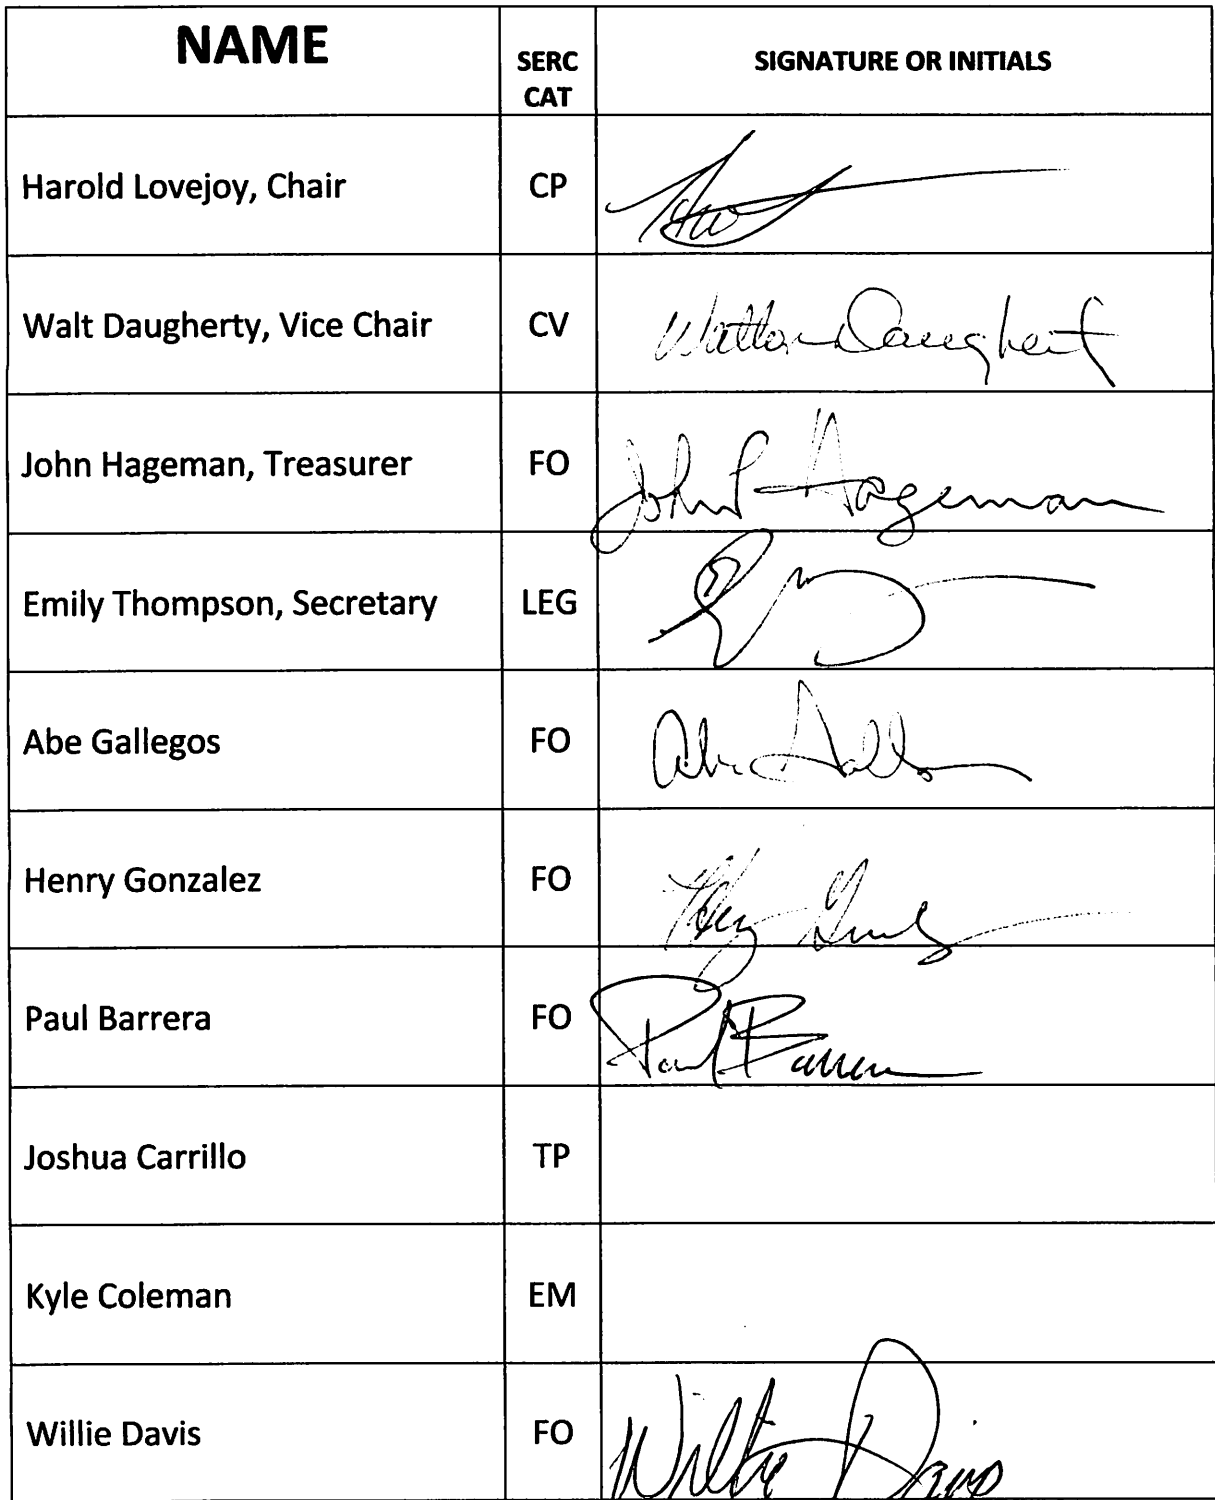 NAME
SERC CAT
SIGNATURE OR INITIALS
Harold Lovejoy, Chair
CP
Walt Daugherty, Vice Chair
CV
Walton Daugherty
John Hageman, Treasurer
FO
John P Hageman
Emily Thompson, Secretary
LEG
Abe Gallegos
FO
Henry Gonzalez
FO
Paul Barrera
FO
Paul Barrera
Joshua Carrillo
TP
Kyle Coleman
EM
Willie Davis
FO
Willie Davis